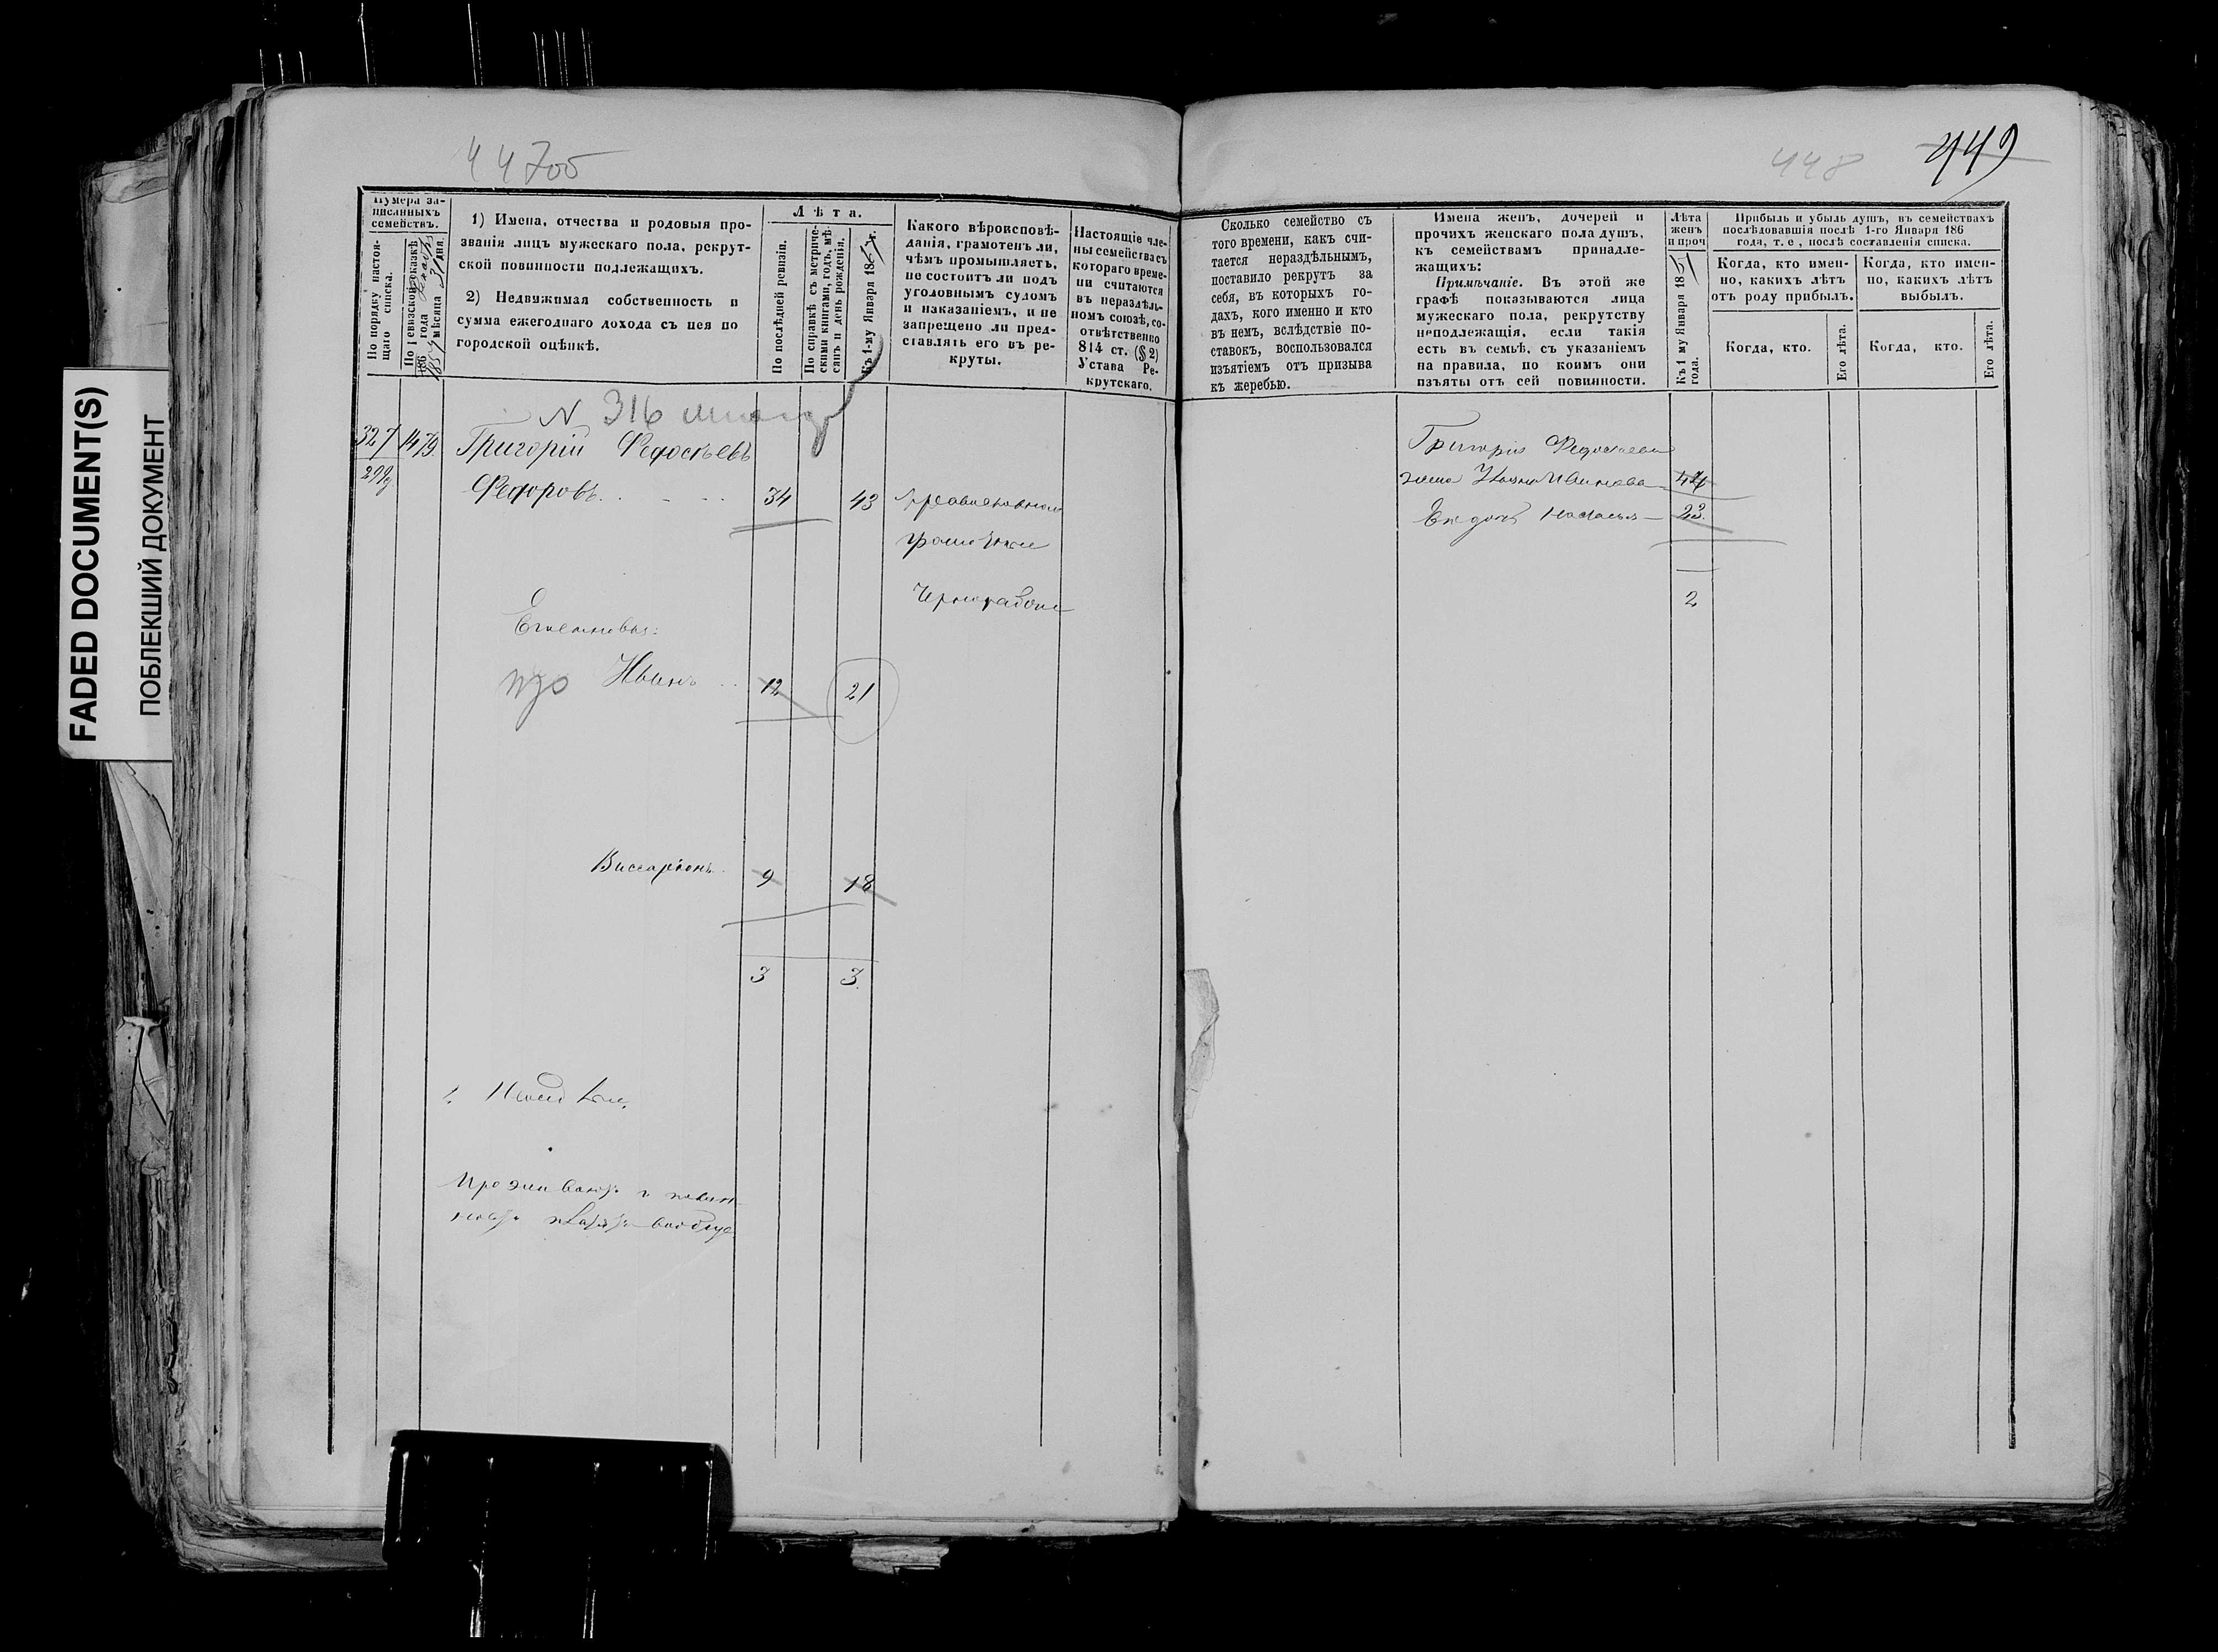 FADED DOCUMENT(S)
ПОБЛЕКШИЙ ДОКУМЕНТ
44700
Нумера за-
писанныхъ
семействъ.
По порядку настоя-
щаго списка.
По ревизской сказкѣ
186 года
мѣсяца 31 дня.
1) Имена, отчества и родовыя про-
званія лицъ мужескаго пола, рекрут-
ской повинности подлежащихъ.
2) Недвижимая собственность и
сумма ежегоднаго дохода съ нея по
городской оцѣнкѣ.
Лѣта.
По послѣдней ревизіи.
По справкѣ съ метриче-
скими книгами, годъ, мѣ-
сяцъ и день рожденія.
Къ 1-му Января 1867 г.
Какого вѣроисповѣ-
данія, грамотенъ ли,
чѣмъ промышляетъ,
не состоитъ ли подъ
уголовнымъ судомъ
и наказаніемъ, и не
запрещено ли пред-
ставлять его въ ре-
круты.
Настоящіе чле-
ны семейства съ
котораго време-
ни считаются
въ нераздѣль-
номъ союзѣ, со-
отвѣтственно
814 ст. (§ 2)
Устава Ре-
крутскаго.
N 316
327 1479. Григорій Федосѣевъ
299
Федоровъ. 34 43 Православнаго
грамотенъ
Чернорабочій
Его сыновья:
Иванъ 12 21
Виссаріонъ. 9 18
3 3
448 449
Сколько семейство съ
того времени, какъ счи-
тается нераздѣльнымъ,
поставило рекрутъ за
себя, въ которыхъ го-
дахъ, кого именно и кто
въ немъ, вслѣдствіе по-
ставокъ, воспользовался
изъятіемъ отъ призыва
къ жеребью.
Имена женъ, дочерей и
прочихъ женскаго пола душъ,
къ семействамъ принадле-
жащихъ:
Примѣчаніе. Въ этой же
графѣ показываются лица
мужескаго пола, рекрутству
неподлежащія, если такія
есть въ семьѣ, съ указаніемъ
на правила, по коимъ они
изъяты отъ сей повинности.
Лѣта
женъ
и проч
Къ 1 му Января 18
года.
Прибыль и убыль душъ, въ семействахъ
послѣдовавшія послѣ 1-го Января 186
года, т. е., послѣ составленія списка.
Когда, кто имен-
но, какихъ лѣтъ
отъ роду прибылъ.
Когда, кто имен-
но, какихъ лѣтъ
выбылъ.
Когда, кто.
Его лѣта.
Когда, кто.
Его лѣта.
Григорія Федосѣева
жена Ивинова 44
Его дочь Наталья 23.
2